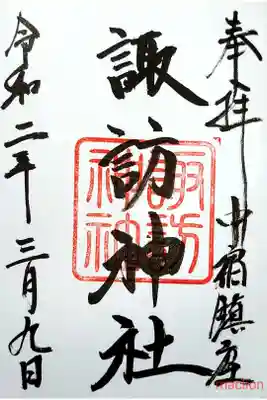 奉拝 中宿鎮座
諏訪神社
諏訪神社
令和二年三月九日